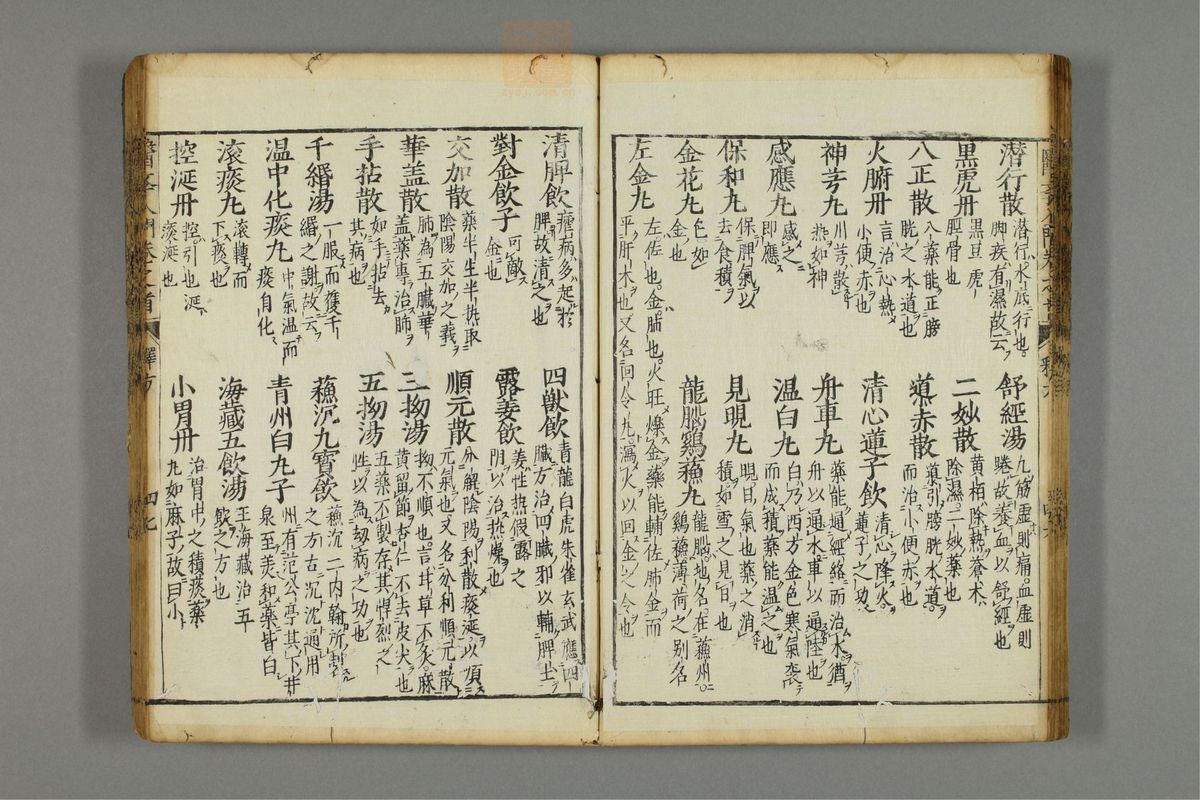 潛行散
潛行水底行也。
脚疾有濕故云
舒經湯
九筋虛則痛。血虛則
踡故養血以舒經也
黑虎丹
黑豆虎
脛骨也
二妙散
黄栢除熱蒼术
除濕。二妙藥也
八正散
八藥能正膀
胱之水道也
導赤散
導引膀胱水道。
而治小便赤也
火腑丹
言治心熱
小便赤也
清心蓮子飲
清心降火。
蓮子之功
神芎丸
川芎散
熱如神
舟車丸
藥能通經絡而治水。猶
舟以通水。車以通陸也
感應丸
感之
即應
温白丸
白乃西方金色寒氣襲
而成積藥能温之也
保和丸
保脾氣以
去食積
見晛丸
晛日氣也藥之消
積如雪之見日也
金花丸
色如
金也
龍腦鷄蘓丸
龍腦地名。在蘓州。
鷄蘓薄荷之别名
左金丸
左佐也。金肺也。火旺爍金藥能輔佐肺金而
平肝木也又名回令丸。瀉火以回金之令也
清脾飲
瘧病多起於
脾故清之也
四獸飲
青龍白虎朱雀玄武應四
臟方治四臟邪以輔脾土
對金飲子
可敵
金也
露姜飲
姜性熱假露之
陰以治熱燥也
交加散
藥半生半热取
陰陽交加之義
順元散
分解陰陽利散痰涎以順
元氣也又名分利順元散
華盖散
肺為五臟華
盖藥專治肺
三拗湯
拗不順也。言甘草不炙。麻
黄畱節杏仁不去皮尖也
手拈散
如手拈去
其病也
五拗湯
五藥不製存其悍烈之
性以為劫病之功也
千緡湯
一服而獲千
緡之謝故云
蘓沉九寶飲
蘓沉二内翰所製
之方古沉沈通用
温中化痰丸
中氣温而
痰自化
青州白丸子
青州有范公亭其下井
泉至美和藥皆白
滚痰丸
滚轉而
下痰也
海藏五飲湯
王海藏治五
飲之方也
控涎丹
控引也涎
痰涎也
小胃丹
治胃中之積痰藥
丸如麻子故曰小
醫學入門 卷之首
釋方
四七